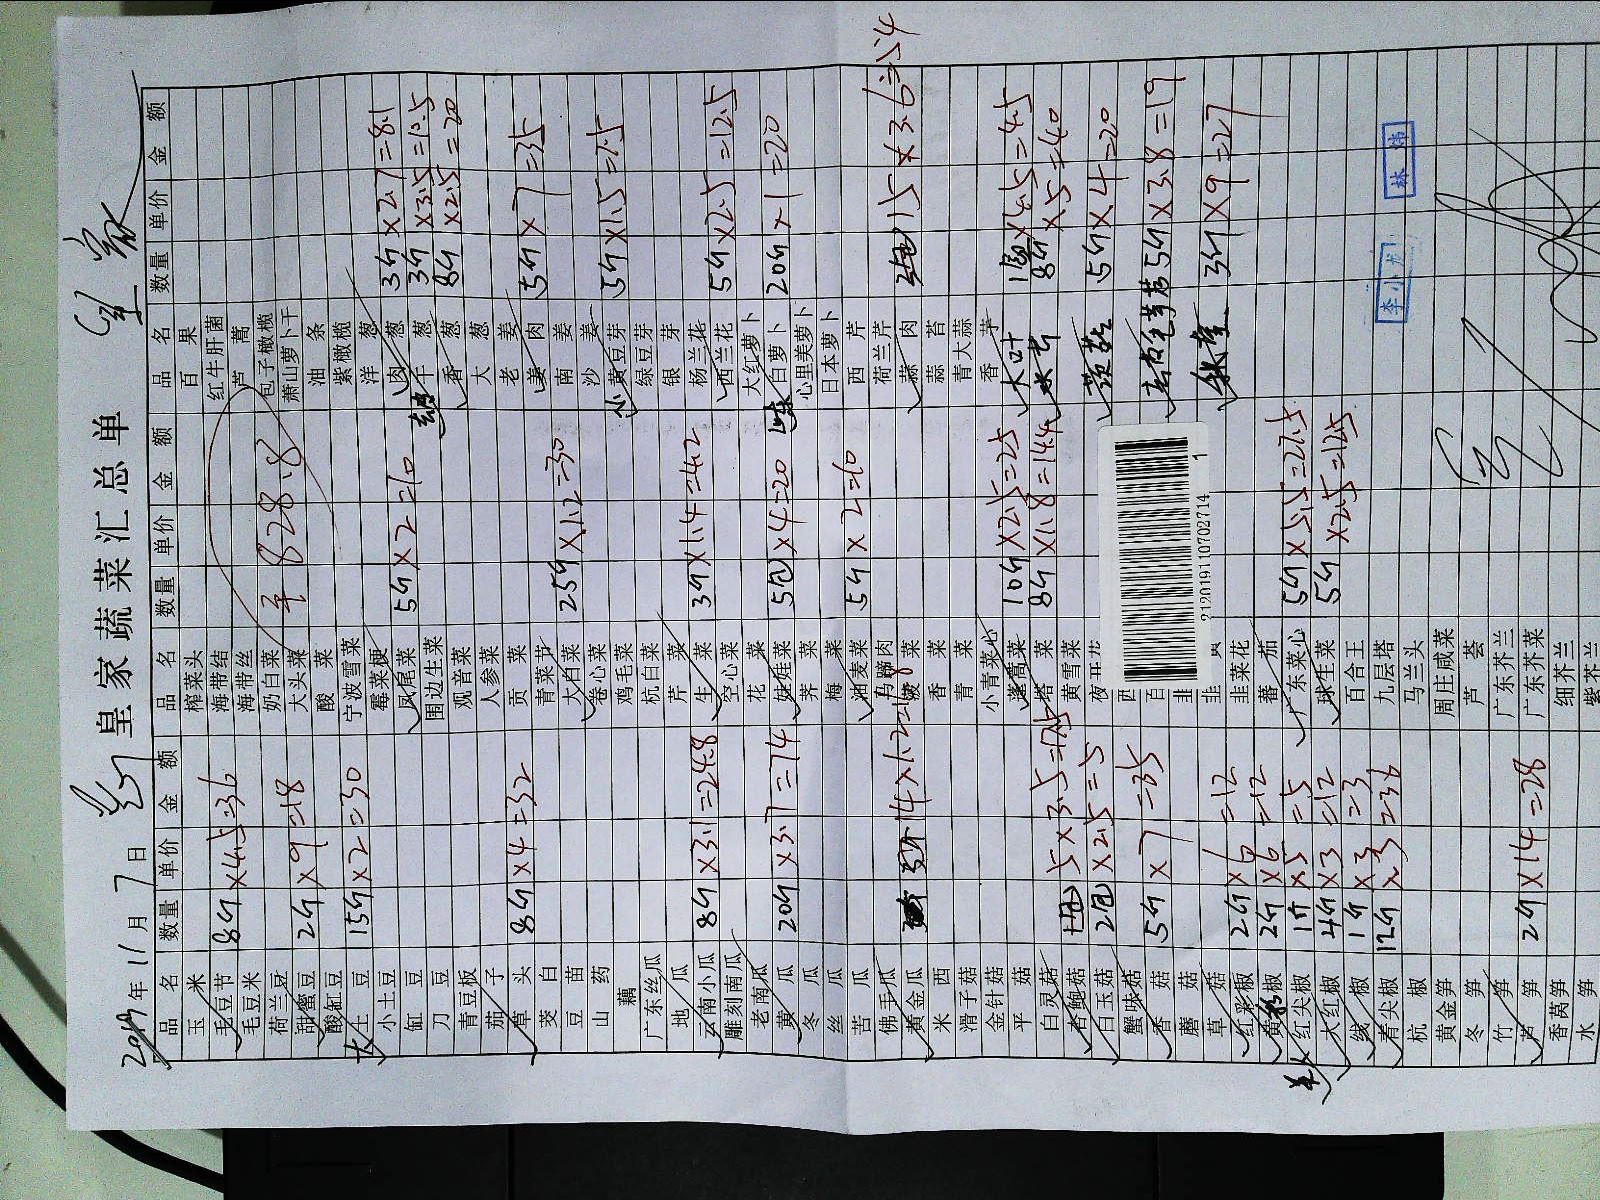 皇家蔬菜汇总单
2019年11月7日
品名 数量 单价 金额 品名 数量 单价 金额 品名 数量 单价 金额
玉米 榨菜头 百果
毛豆节 8斤×4.5=36 海带结 红牛肝菌
毛豆米 海带丝 芦蒿
荷兰豆 奶白菜 包子橄榄
甜蜜豆 2斤×9=18 大头菜 平828.8 萧山萝卜干
酸缸豆 酸菜 油条
大土豆 15斤×2=30 宁波雪菜 紫橄榄
小土豆 霉菜梗 洋葱
缸豆 凤尾菜 5斤×2=10 肉葱 3斤×2.7=8.1
刀豆 围边生菜 干葱 3斤×3.5=10.5
青豆板 观音菜 香葱 8斤×2.5=20
茄子 人参菜 大葱
草头 8斤×4=32 贡菜 老姜
茭白 青菜节 姜肉 5斤×7=35
豆苗 大白菜 25斤×1.2=30 南姜
山药 卷心菜 沙姜
藕 鸡毛菜 小黄豆芽 5斤×1.5=7.5
广东丝瓜 杭白菜 绿豆芽
地瓜 芹菜 银芽
云南小瓜 8斤×3.1=24.8 生菜 3斤×1.4=4.2 杨兰花
雕刻南瓜 空心菜 西兰花 5斤×2.5=12.5
老南瓜 花菜 大红萝卜
黄瓜 20斤×3.7=74 娃娃菜 5包×4=20 白萝卜 20斤×1=20
冬瓜 荠菜 心里美萝卜
丝瓜 梅菜 日本萝卜
苦瓜 油麦菜 5斤×2=10 西芹
佛手瓜 马蹄肉 荷兰芹
黄金瓜 菠菜 蒜肉 15×3.6=54
米西 香菜 蒜苔
滑子菇 青菜 青大蒜
金针菇 小青菜心 香芋
平菇 蓬蒿菜 10斤×2.5=25 大叶 ×4.5=4.5
白灵菇 塔菜 8斤×1.8=14.4 8斤×5=40
杏鲍菇 5×3.5=17.5 黄雪菜
白玉菇 2包×2.5=5 夜开花 5斤×4=20
蟹味菇
香菇 5斤×7=35 5斤×3.8=19
蘑菇
草菇 3斤×9=27
红彩椒 2斤×6=12 韭菜花
黄彩椒 2斤×6=12 蕃茄
红尖椒 1斤×5=5 广东菜心 5斤×5.5=27.5
大红椒 4斤×3=12 球生菜 5斤×2.5=12.5
线椒 1斤×3=3 百合王
青尖椒 12斤×3=36 九层塔
杭椒 马兰头
黄金笋 周庄咸菜
冬笋 芦荟
竹笋 广东芥兰
芦笋 2斤×14=28 广东芥菜
香莴笋 细芥兰
水笋 紫芥兰
212019110702714 1
李小龙
林炜